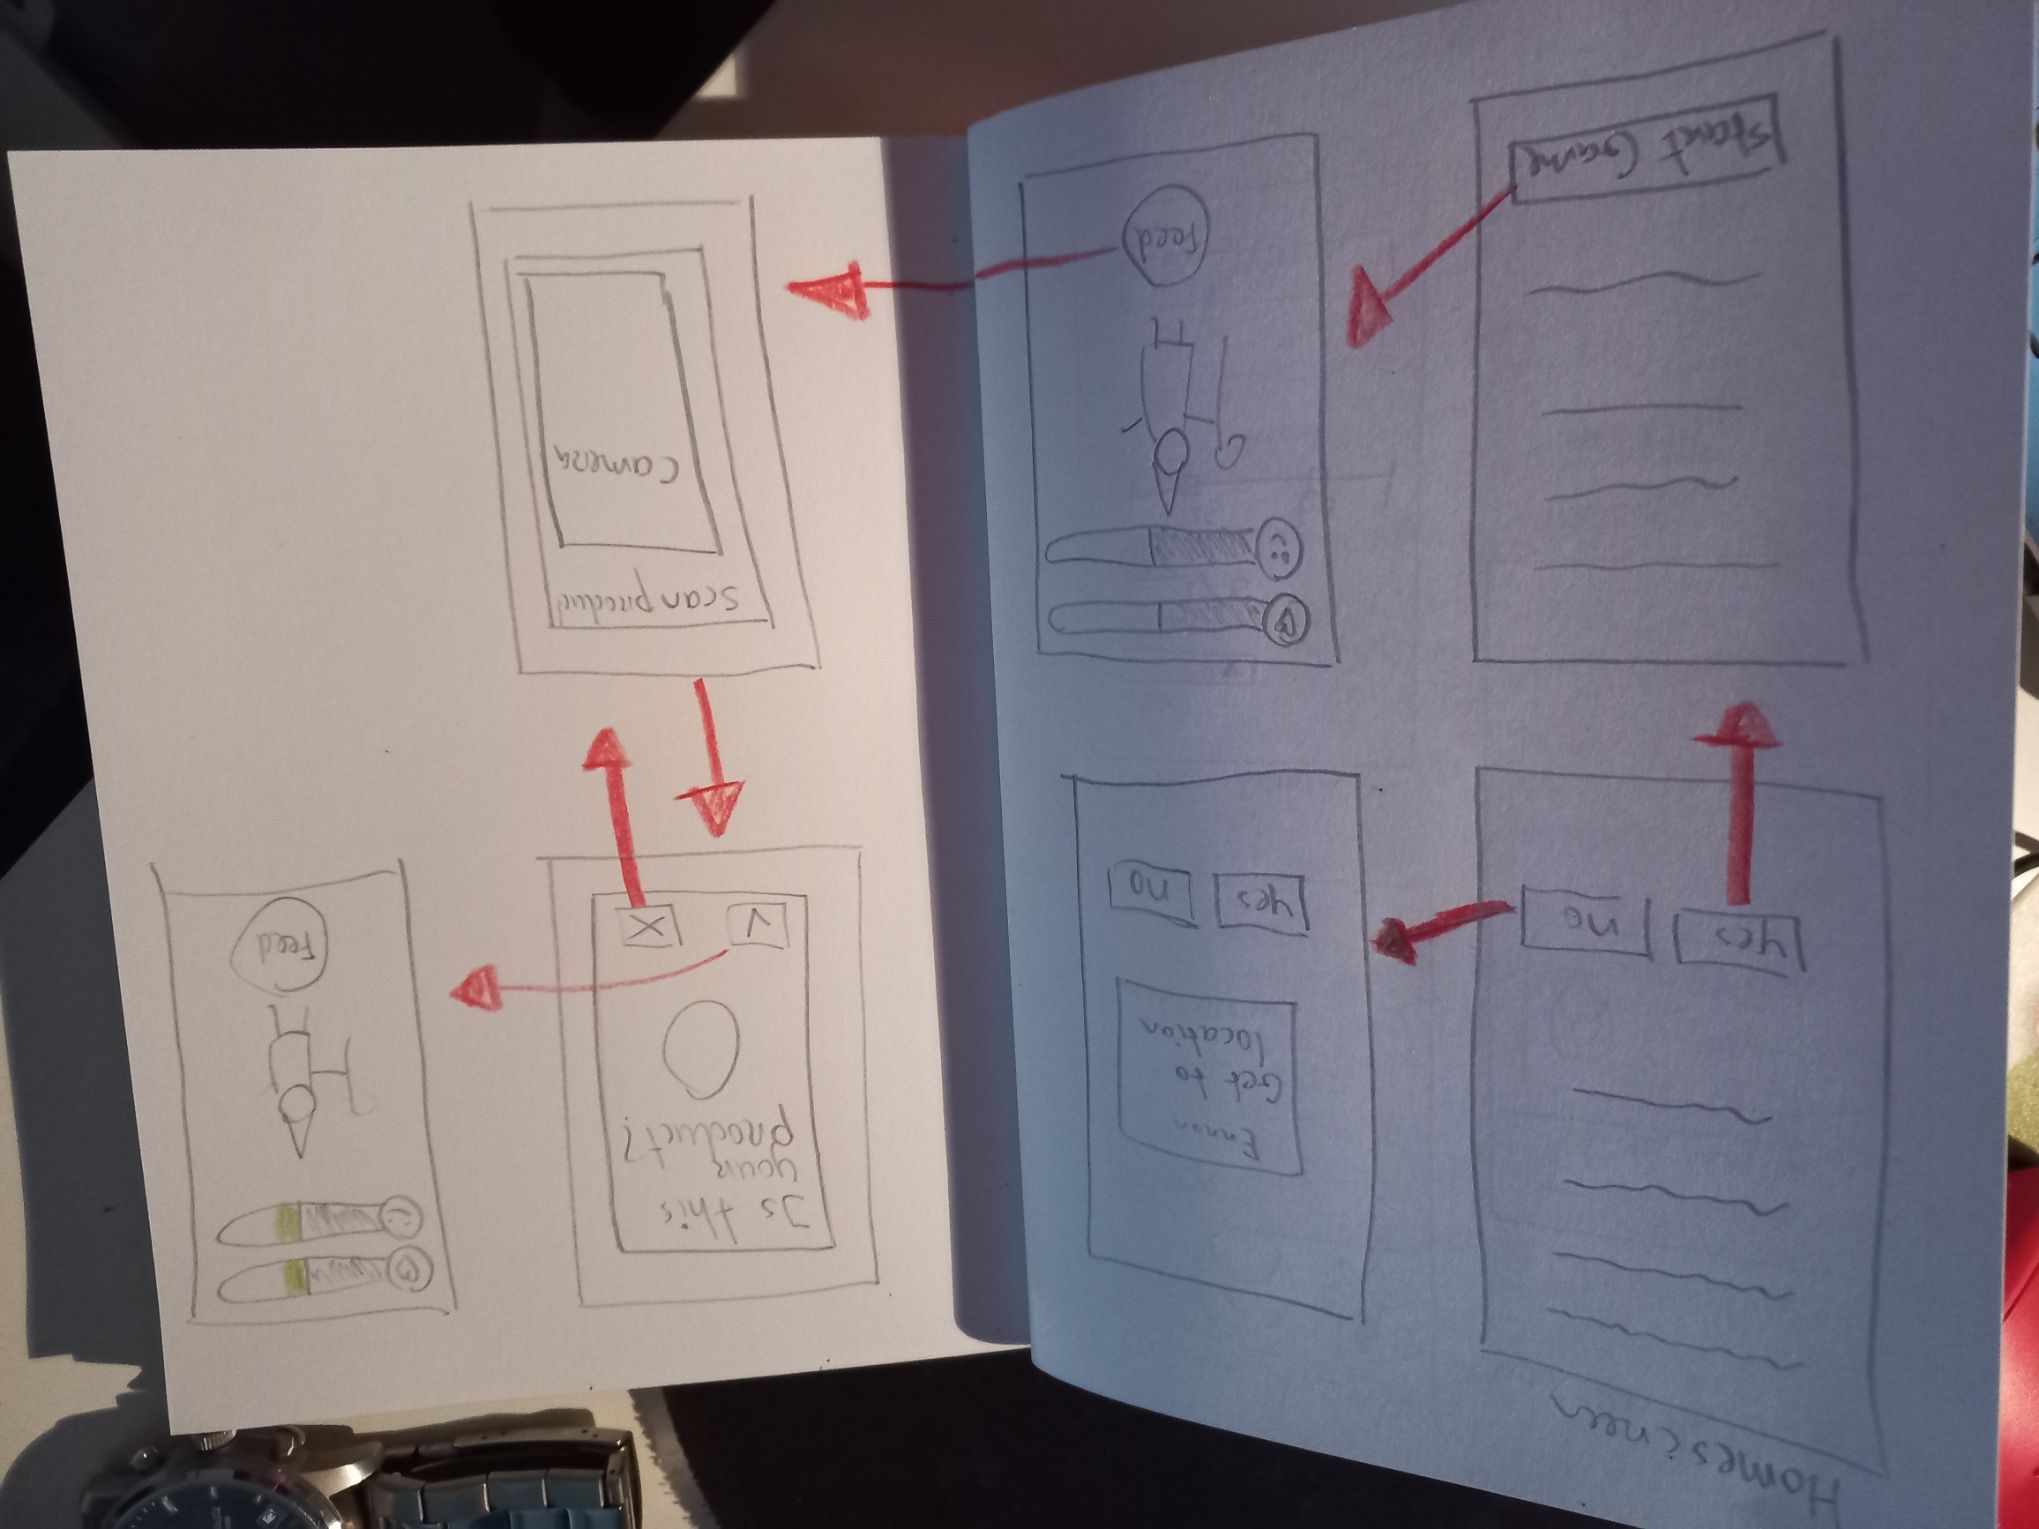 Homescreen
yes
no
Error
Get to
location
yes
no
Start Game
Feed
Is this
your
product?
Feed
Scan product
Camera